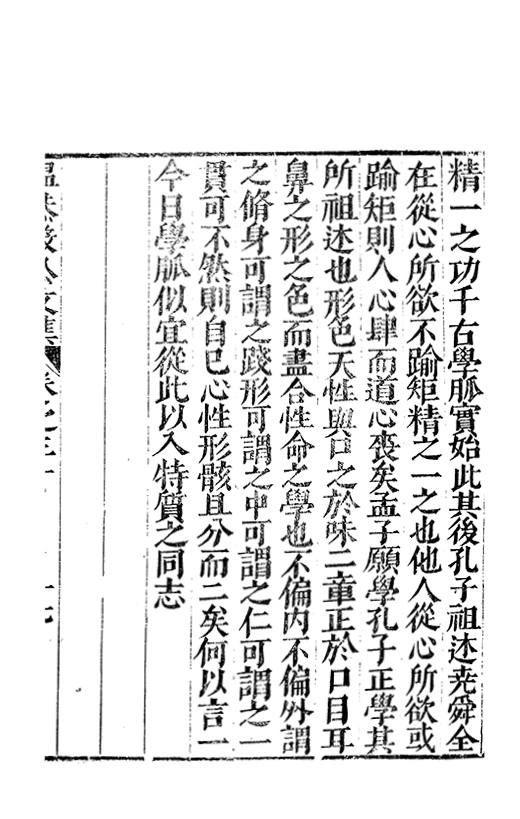 精一之功千古學脈實始此其後孔子祖述堯舜全
在從心所欲不踰矩精之一之也他人從心所欲或
踰矩則人心肆而道心喪矣孟子願學孔子正學其
所祖述也形色天性與口之於味二章正於口目耳
鼻之形之色而盡合性命之學也不偏内不偏外謂
之脩身可謂之踐形可謂之中可謂之仁可謂之一
貫可不然則自己心性形骸且分而二矣何以言一
今日學脈似宜從此以入特質之同志
文集 卷之三